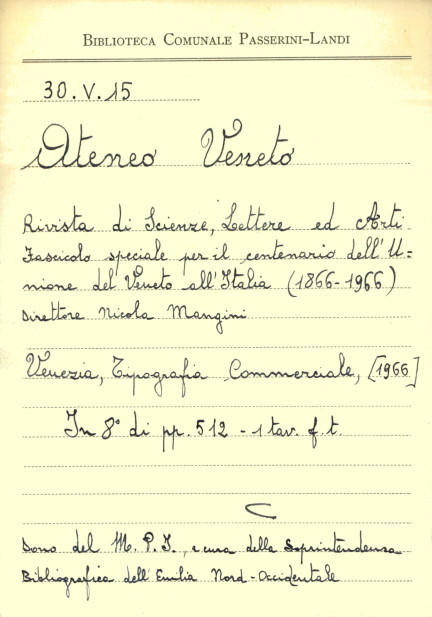 BIBLIOTECA COMUNALE PASSERINI-LANDI
30.V.15
Ateneo Veneto
Rivista di Scienze, Lettere ed Arti
Fascicolo speciale per il centenario dell'U=
nione del Veneto all'Italia (1866-1966)
Direttore Nicola Mangini
Venezia, Tipografia Commerciale, [1966]
In 8° di pp. 512 - 1 tav. f. t.
C
Dono del M. P. I., a cura della Soprintendenza
Bibliografica dell'Emilia Nord-Occidentale